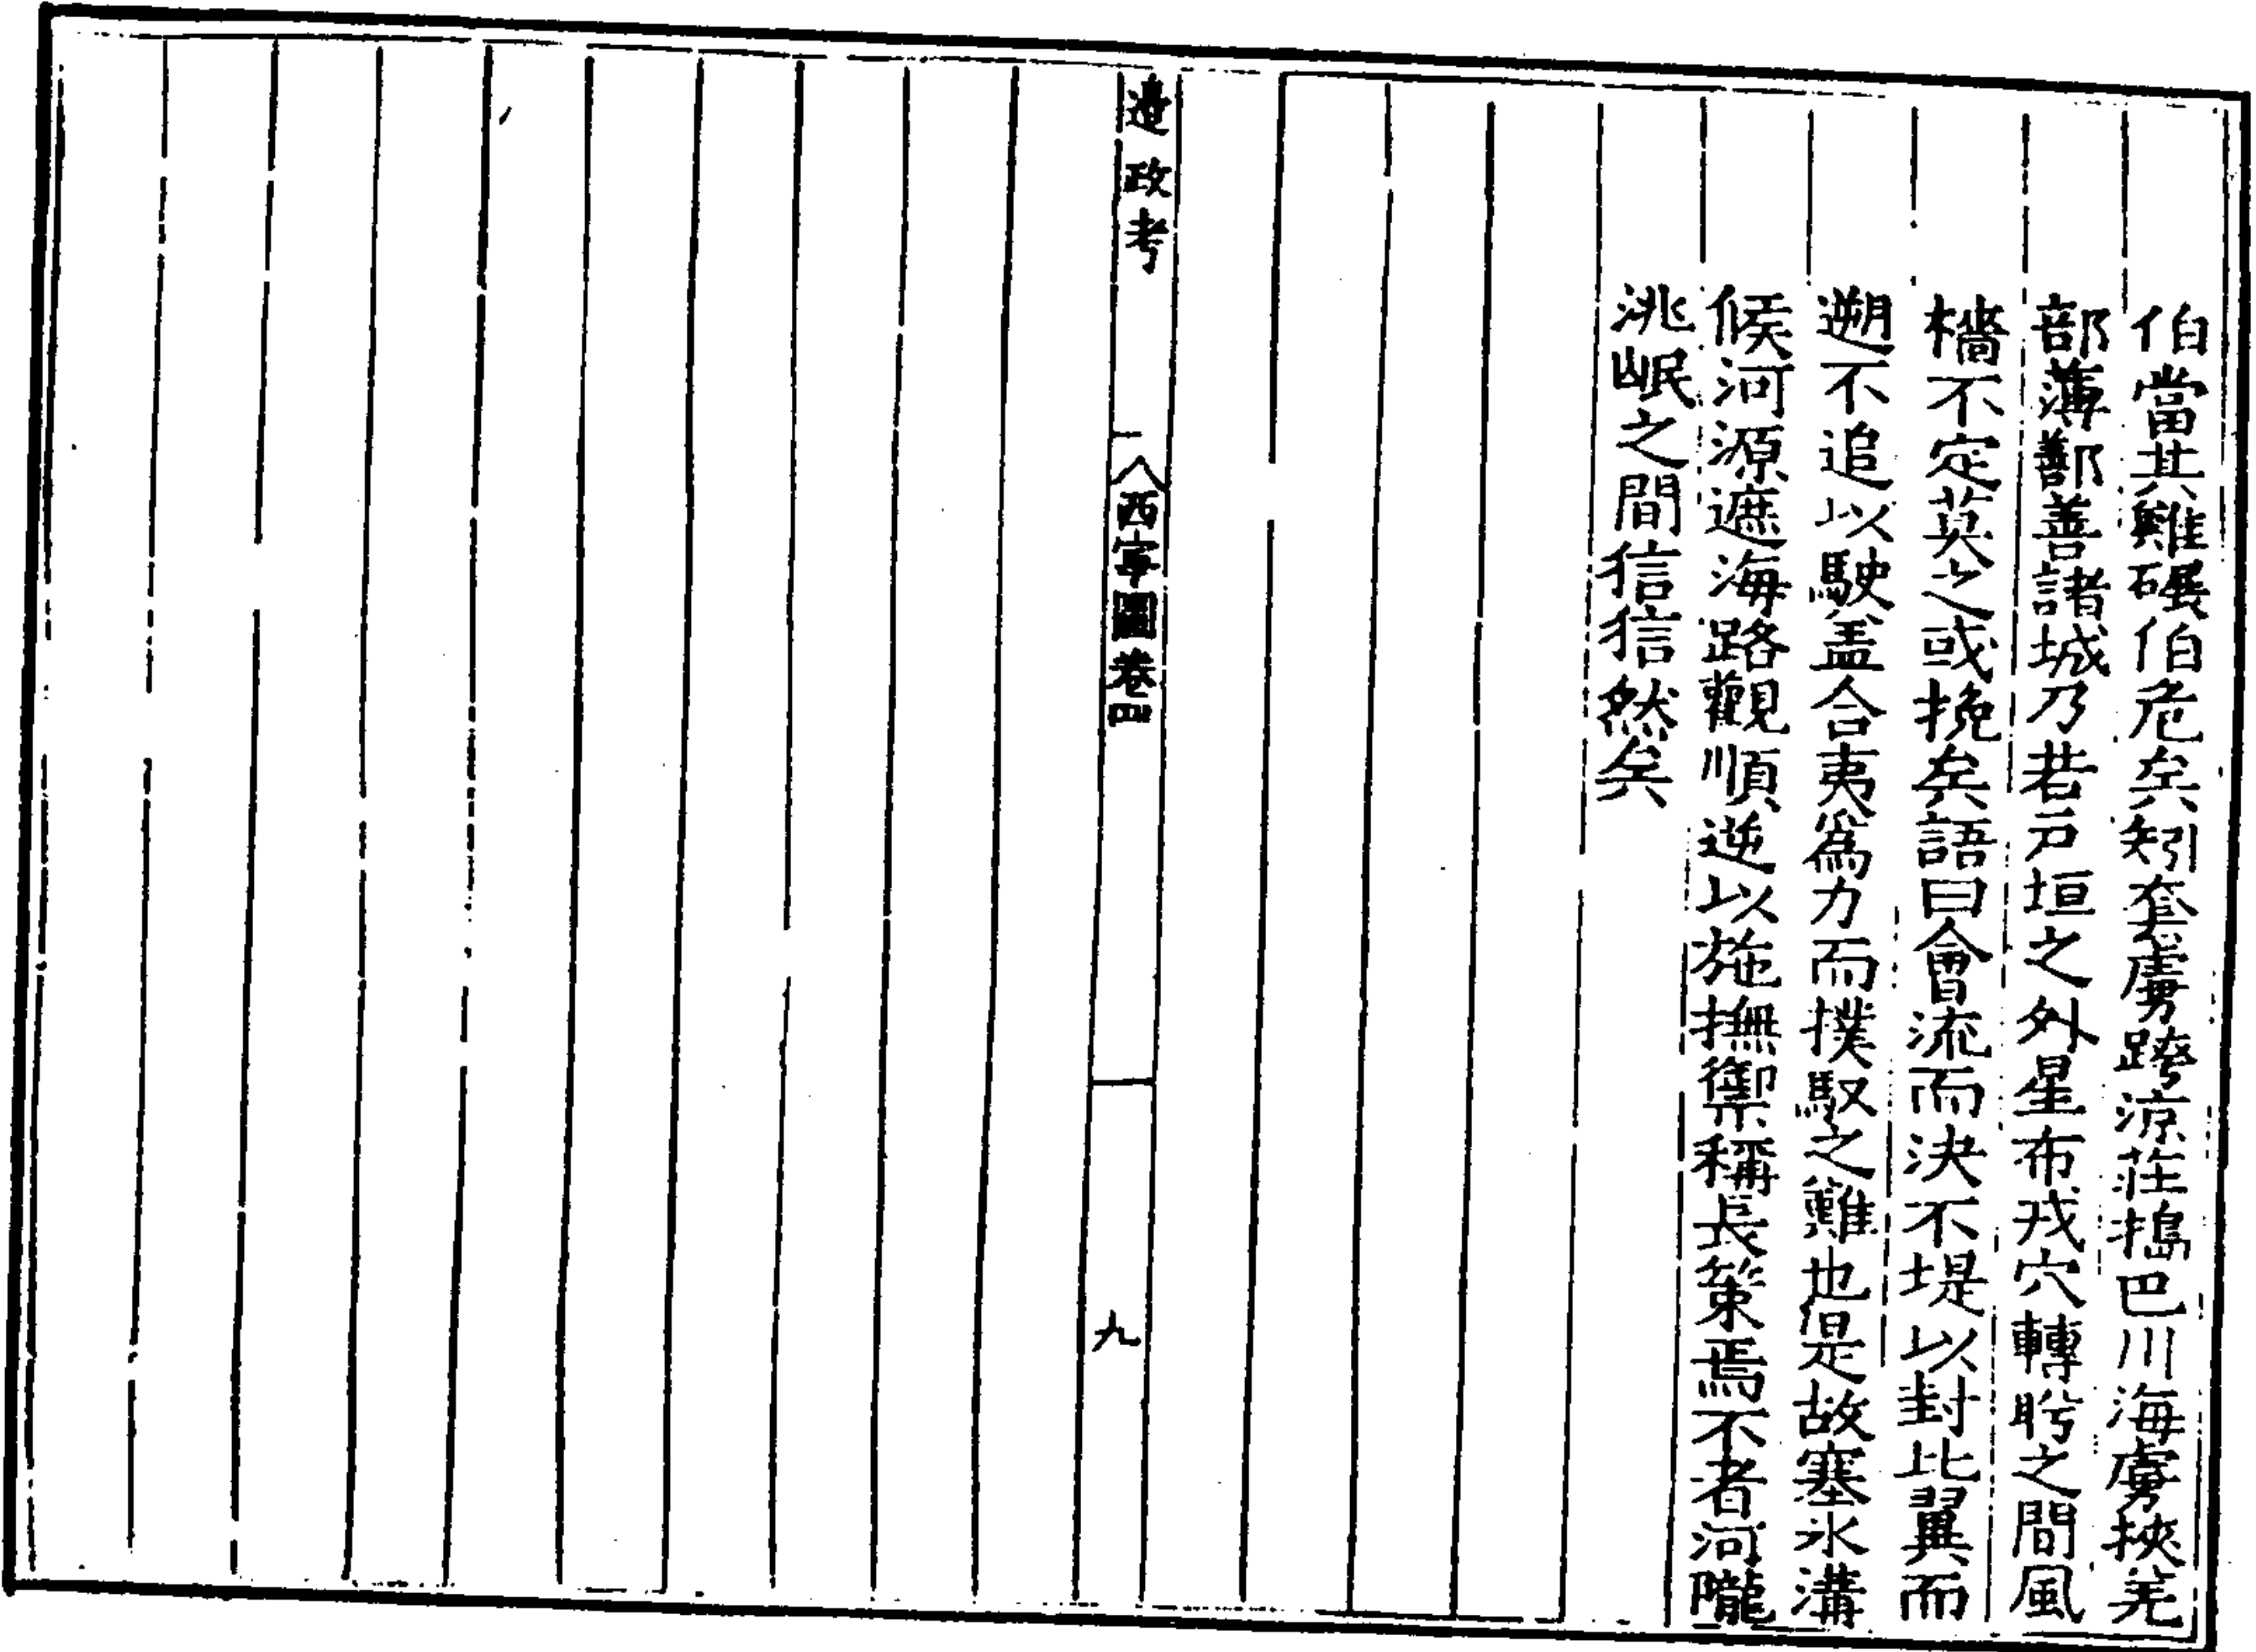 伯當其難碾伯危矣矧套虜跨涼莊搗巴川海虜挾羌
部薄鄯善諸城乃若戸垣之外星布戎穴轉盻之間風
檣不定莫之或挽矣語曰會流而決不堤以封比翼而
遡不追以駛盖合夷爲力而撲馭之難也是故塞氷溝
候河源遮海路觀順逆以施撫禦稱長策焉不者河隴
洮岷之間狺狺然矣
邊政考
西寧圖卷四
九